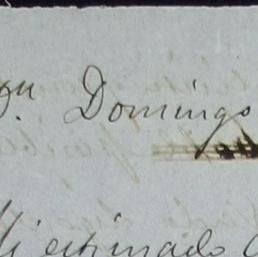 Dn. Domingo
Mi estimado